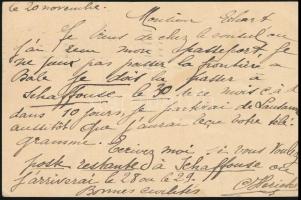 le 20 novembre.
Monsieur Eckart
Je viens de chez le consul où
j'ai reçu mon passeport. Je
ne peux pas passer la frontière à
Bâle je dois la passer à
Schaffouse le 30 de ce mois c à d
dans 10 jours, je partirai de Lausanne
aussitôt que j'aurai reçu votre télé
gramme. Ecrivez moi, si vous voulez
poste restante à Schaffouse où
j'arriverai le 28 ou le 29.
Bonnes civilités